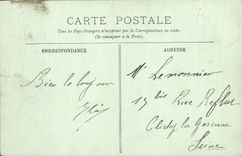 CARTE POSTALE
Tous les Pays étrangers n'acceptent pas la Correspondance au recto.
(Se renseigner à la Poste).
CORRESPONDANCE
ADRESSE
Bien le bonjour
Mr Lemonnier
17 bis Rue
Clichy la Garenne
Seine